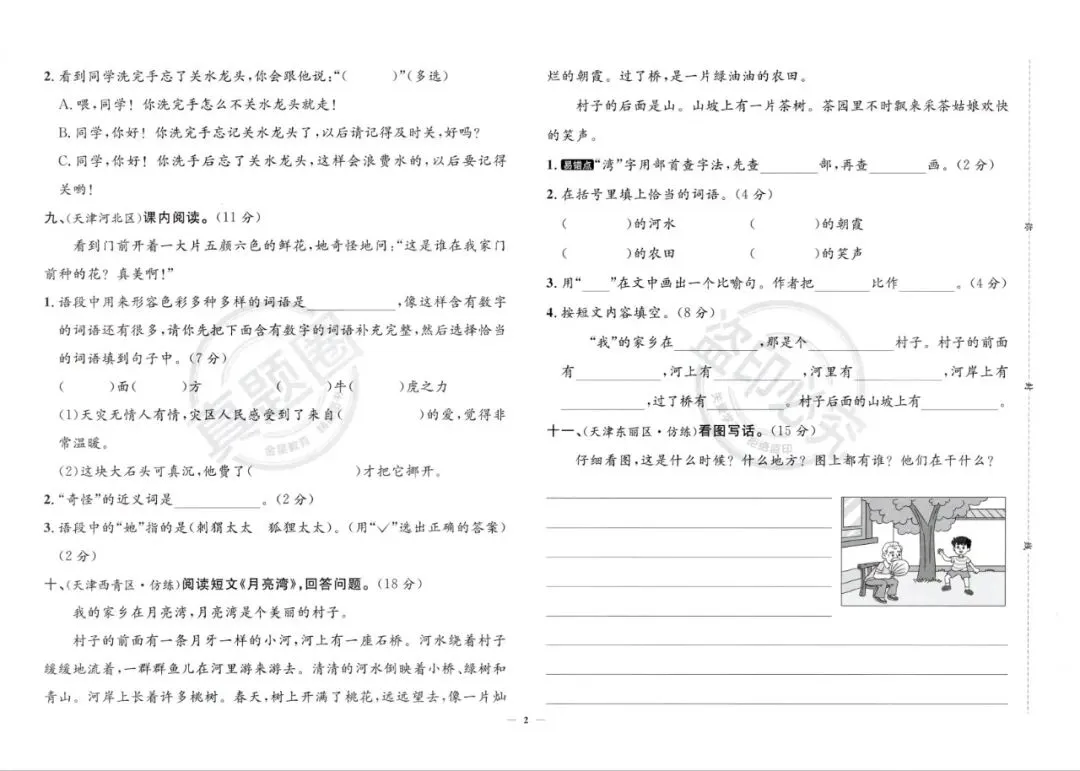 2. 看到同学洗完手忘了关水龙头,你会跟他说:“(　　)”(多选)
A. 喂,同学! 你洗完手怎么不关水龙头就走!
B. 同学,你好! 你洗完手忘记关水龙头了,以后请记得及时关,好吗?
C. 同学,你好! 你洗手后忘了关水龙头,这样会浪费水的,以后要记得
关哟!
九、(天津河北区)课内阅读。(11 分)
看到门前开着一大片五颜六色的鲜花,她奇怪地问:“这是谁在我家门
前种的花? 真美啊!”
1. 语段中用来形容色彩多种多样的词语是____________,像这样含有数字
的词语还有很多,请你先把下面含有数字的词语补充完整,然后选择恰当
的词语填到句子中。(7 分)
(　　)面(　　)方　　(　　)牛(　　)虎之力
(1)天灾无情人有情,灾区人民感受到了来自(　　)的爱,觉得非
常温暖。
(2)这块大石头可真沉,他费了(　　)才把它挪开。
2. “奇怪”的近义词是____________。(2 分)
3. 语段中的“她”指的是(刺猬太太　狐狸太太)。(用“✓”选出正确的答案)
(2 分)
十、(天津西青区·仿练)阅读短文《月亮湾》,回答问题。(18 分)
我的家乡在月亮湾,月亮湾是个美丽的村子。
村子的前面有一条月牙一样的小河,河上有一座石桥。河水绕着村子
缓缓地流着,一群群鱼儿在河里游来游去。清清的河水倒映着小桥、绿树和
青山。河岸上长着许多桃树。春天,树上开满了桃花,远远望去,像一片灿
烂的朝霞。过了桥,是一片绿油油的农田。
村子的后面是山。山坡上有一片茶树。茶园里不时飘来采茶姑娘欢快
的笑声。
1. 易错点 “湾”字用部首查字法,先查________部,再查________画。(2 分)
2. 在括号里填上恰当的词语。(4 分)
(　　)的河水　　(　　)的朝霞
(　　)的农田　　(　　)的笑声
3. 用“____”在文中画出一个比喻句。作者把________比作________。(4 分)
4. 按短文内容填空。(8 分)
“我”的家乡在____________,那是个____________村子。村子的前面
有____________,河上有____________,河里有____________,河岸上有
____________,过了桥有____________。村子后面的山坡上有____________。
十一、(天津东丽区·仿练)看图写话。(15 分)
仔细看图,这是什么时候? 什么地方? 图上都有谁? 他们在干什么?
— 2 —
密
封
线
真题圈
金星教育
盗印必究
拒绝盗印